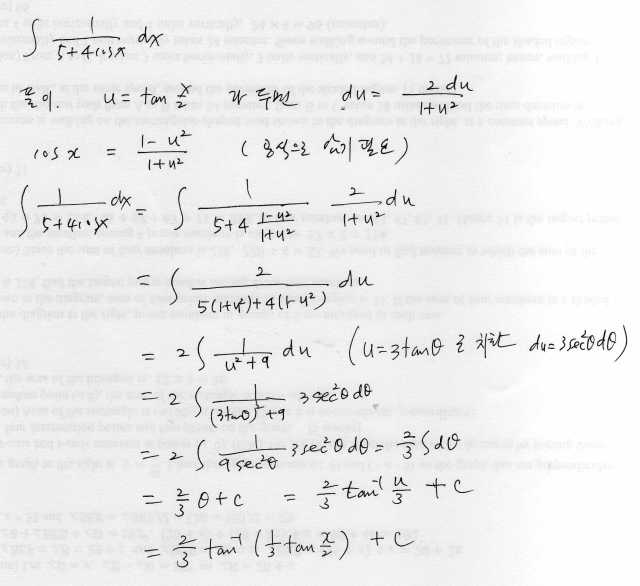 ∫ 1/(5+4cosx) dx
풀이. u = tan x/2 라 두면 du = 2du/(1+u²)
cos x = (1-u²)/(1+u²) (공식으로 암기 필요)
∫ 1/(5+4cosx) dx = ∫ 1/(5+4 (1-u²)/(1+u²)) 2/(1+u²) du
= ∫ 2/(5(1+u²)+4(1-u²)) du
= 2∫ 1/(u²+9) du (u=3tanθ로 치환 du=3sec²θdθ)
= 2∫ 1/((3tanθ)²+9) 3sec²θ dθ
= 2∫ 1/(9sec²θ) 3sec²θ dθ = 2/3 ∫dθ
= 2/3 θ+c = 2/3 tan⁻¹ u/3 + C
= 2/3 tan⁻¹ (1/3 tan x/2) + C.